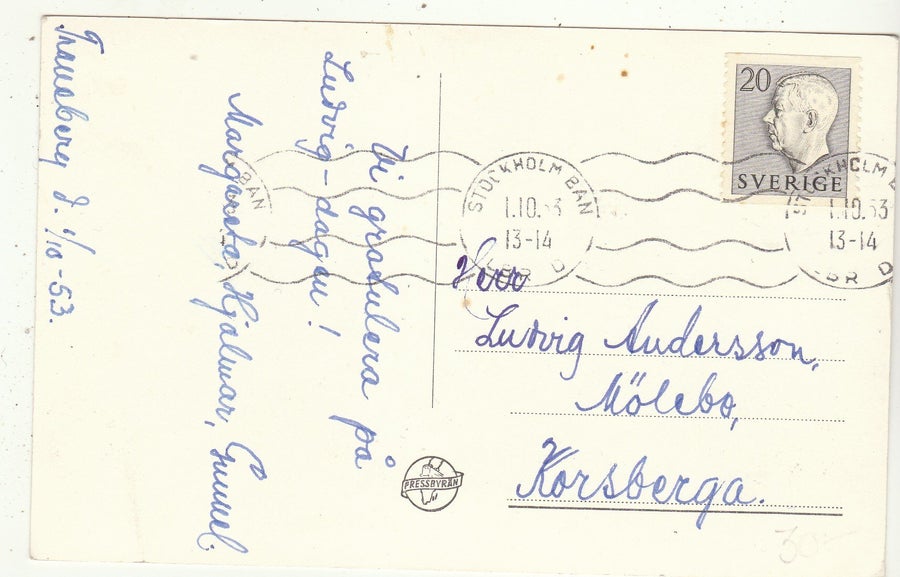 Tranåberg d. 1/10-53.
Vi gratulera på
Ludvig-dagen!
Margareta, Hjalmar, Gunnel.
20
SVERIGE
STOCKHOLM BAN
1.10.53
13-14
LBR D
STOCKHOLM B
1.10.53
13-14
LBR D
BAN
Herr
Ludvig Andersson,
Mölebo,
Korsberga.
PRESSBYRÅN
30:-